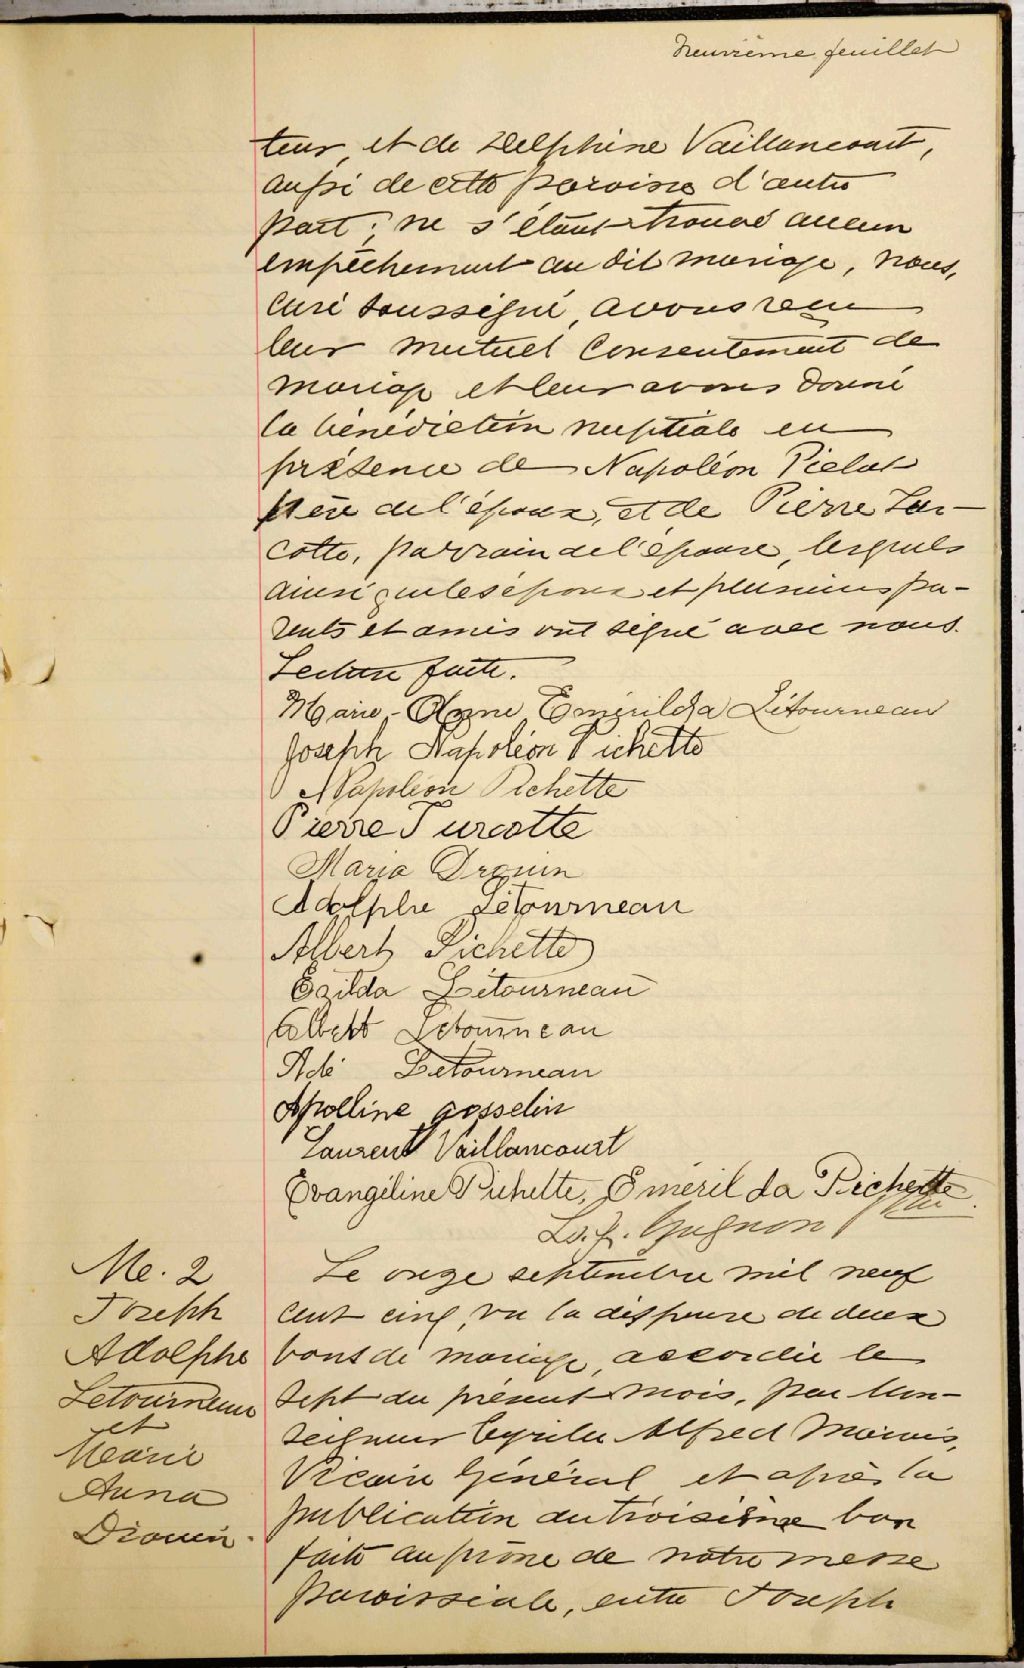 Neuvième feuillet
teur, et de Delphine Vaillancourt,
aussi de cette paroisse d'autre
part; ne s'étant trouvé aucun
empêchement au dit mariage, nous,
curé soussigné, avons reçu
leur mutuel consentement de
mariage et leur avons donné
la bénédiction nuptiale en
présence de Napoléon Pichet
père de l'époux, et de Pierre Tur-
cotte, parrain de l'épouse, lesquels
ainsi que les époux et plusieurs pa-
rents et amis ont signé avec nous.
Lecture faite.
Marie-Anne Emérilda Létourneau
Joseph Napoléon Pichette
Napoléon Pichette
Pierre Turcotte
Maria Drouin
Adolphe Létourneau
Albert Pichette
Exilda Létourneau
Albert Letourneau
Adé Letourneau
Apolline gosselin
Laurent Vaillancourt
Evangéline Pichette, Eméril da Pichette
Ls. J. Gagnon Ptre
Me. 2
Joseph
Adolphe
Letourneau
et
Marie
Anna
Drouin.
Le onze septembre mil neuf
cent cinq, vu la dispense de deux
bans de mariage, accordée le
sept du présent mois, par Mon-
seigneur Cyrille Alfred Marois,
Vicaire Général, et après la
publication du troisième ban
faite au prône de notre messe
paroissiale, entre Joseph